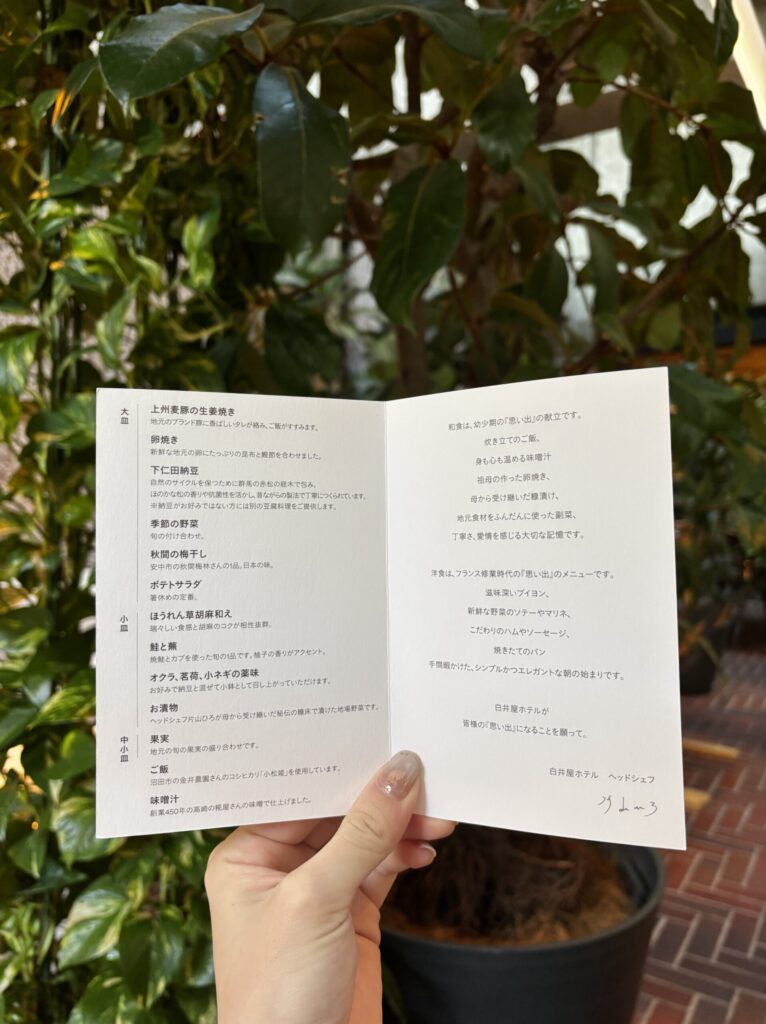 大皿
上州麦豚の生姜焼き
地元のブランド豚に香ばしいタレが絡み、ご飯がすすみます。
卵焼き
新鮮な地元の卵にたっぷりの昆布と鰹節を合わせました。
下仁田納豆
自然のサイクルを保つために群馬の赤松の経木で包み、
ほのかな松の香りや抗菌性を活かし、昔ながらの製法で丁寧につくられています。
※納豆がお好みではない方には別の豆腐料理をご提供します。
季節の野菜
旬の付け合わせ。
秋間の梅干し
安中市の秋間梅林さんの1品。日本の味。
ポテトサラダ
箸休めの定番。
小皿
ほうれん草胡麻和え
瑞々しい食感と胡麻のコクが相性抜群。
鮭と蕪
焼鮭とカブを使った旬の1品です。柚子の香りがアクセント。
オクラ、茗荷、小ネギの薬味
お好みで納豆と混ぜて小鉢として召し上がっていただけます。
お漬物
ヘッドシェフ片山ひろが母から受け継いだ秘伝の糠床で漬けた地場野菜です。
中小皿
果実
地元の旬の果実の盛り合わせです。
ご飯
沼田市の金井農園さんのコシヒカリ「小松姫」を使用しています。
味噌汁
創業450年の高崎の糀屋さんの味噌で仕上げました。
和食は、幼少期の『思い出』の献立です。
炊き立てのご飯、
身も心も温める味噌汁
祖母の作った卵焼き、
母から受け継いだ糠漬け、
地元食材をふんだんに使った副菜、
丁寧さ、愛情を感じる大切な記憶です。
洋食は、フランス修業時代の『思い出』のメニューです。
滋味深いブイヨン、
新鮮な野菜のソテーやマリネ、
こだわりのハムやソーセージ、
焼きたてのパン
手間暇かけた、シンプルかつエレガントな朝の始まりです。
白井屋ホテルが
皆様の『思い出』になることを願って。
白井屋ホテル ヘッドシェフ